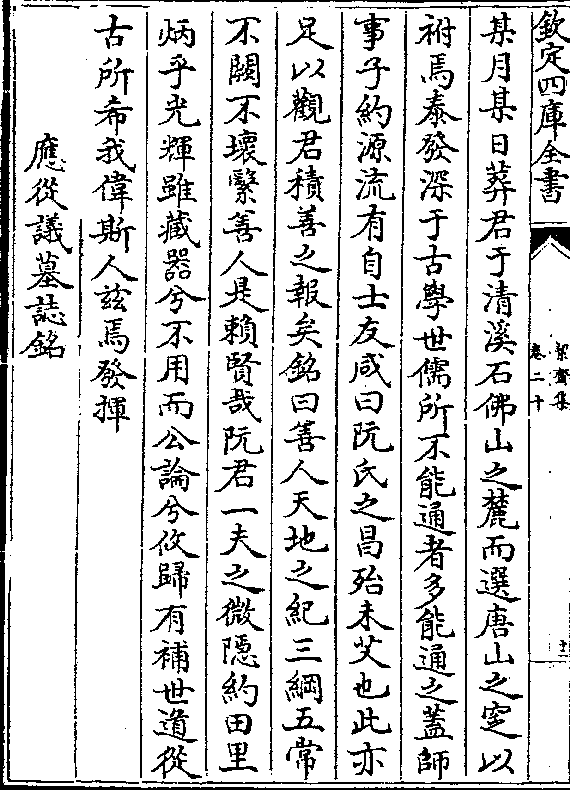 欽定四庫全書
絜齋集
卷二十
十二
某月某日葬君于清溪石佛山之麓而選唐山之窆以
祔焉泰發深于古學世儒所不能通者多能通之蓋師
事子約源流有自士友咸曰阮氏之昌殆未艾也此亦
足以觀君積善之報矣銘曰善人天地之紀三綱五常
不闕不壞繄善人是賴賢哉阮君一夫之微隠約田里
炳乎光輝雖藏器兮不用而公論兮攸歸有補世道從
古所希我偉斯人兹焉發揮
應從議墓誌銘